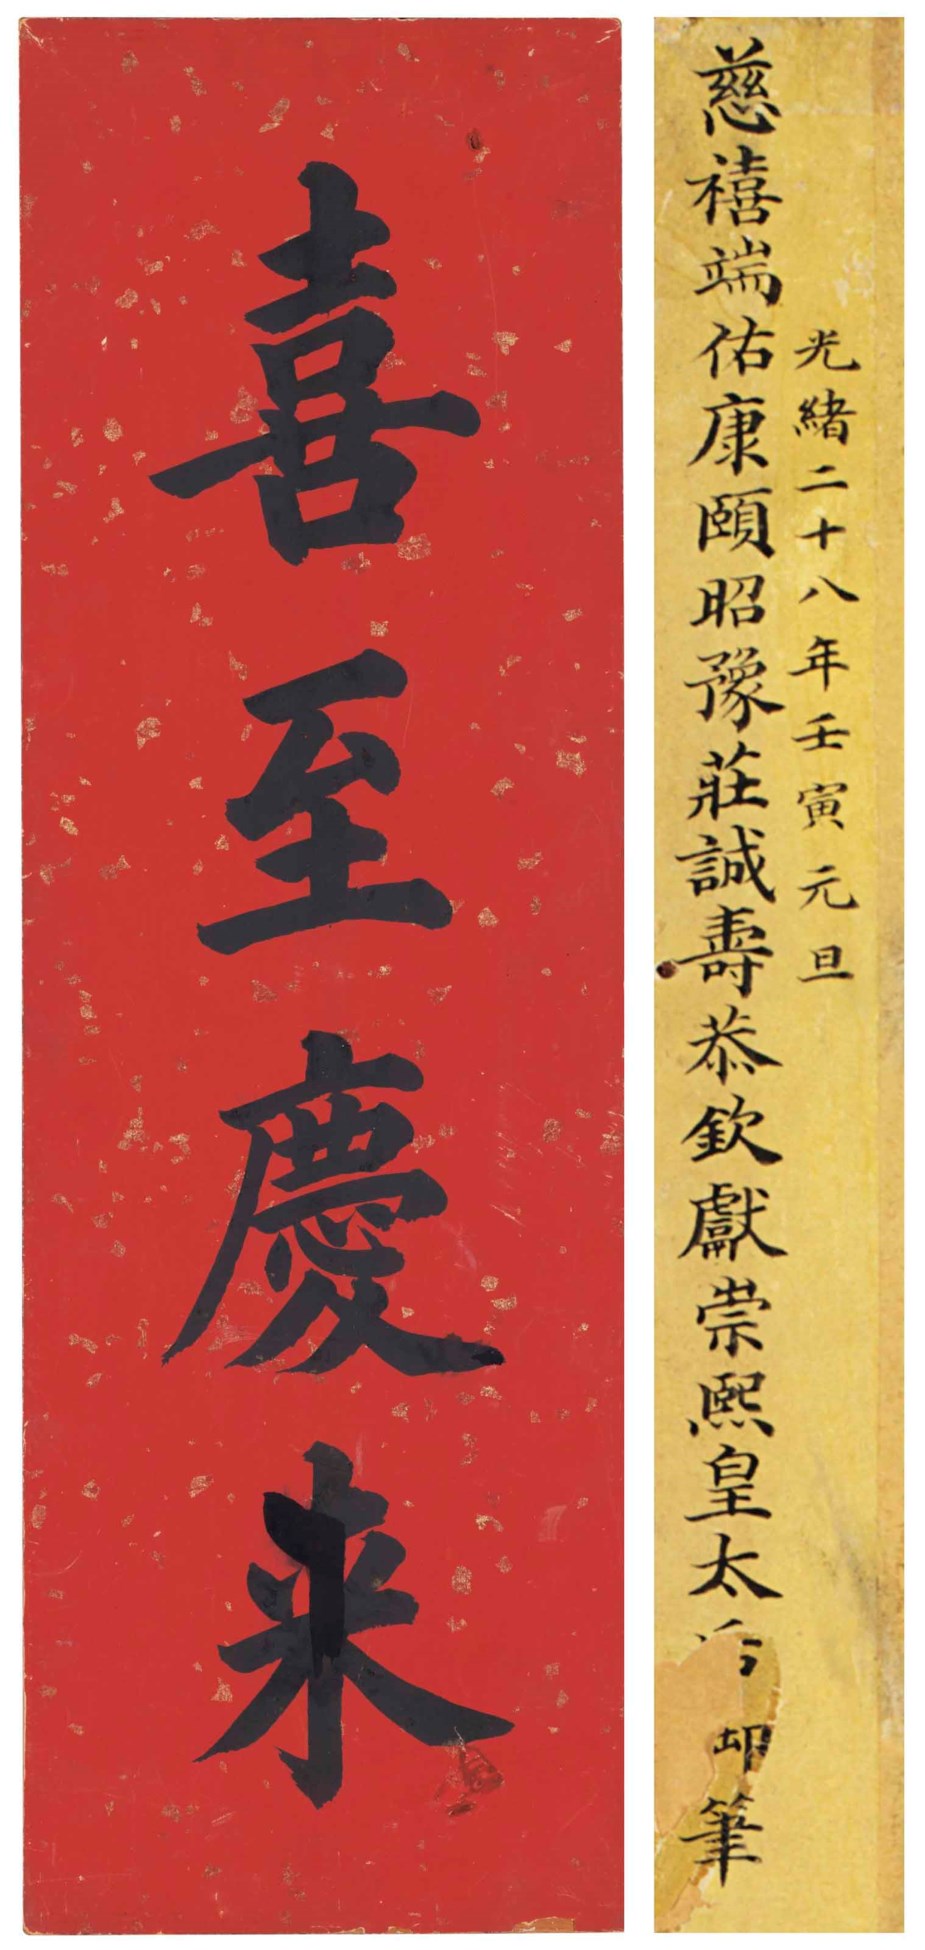 喜至慶来
光緒二十八年壬寅元旦
慈禧端佑康頤昭豫莊誠壽恭欽獻崇熙皇太
筆